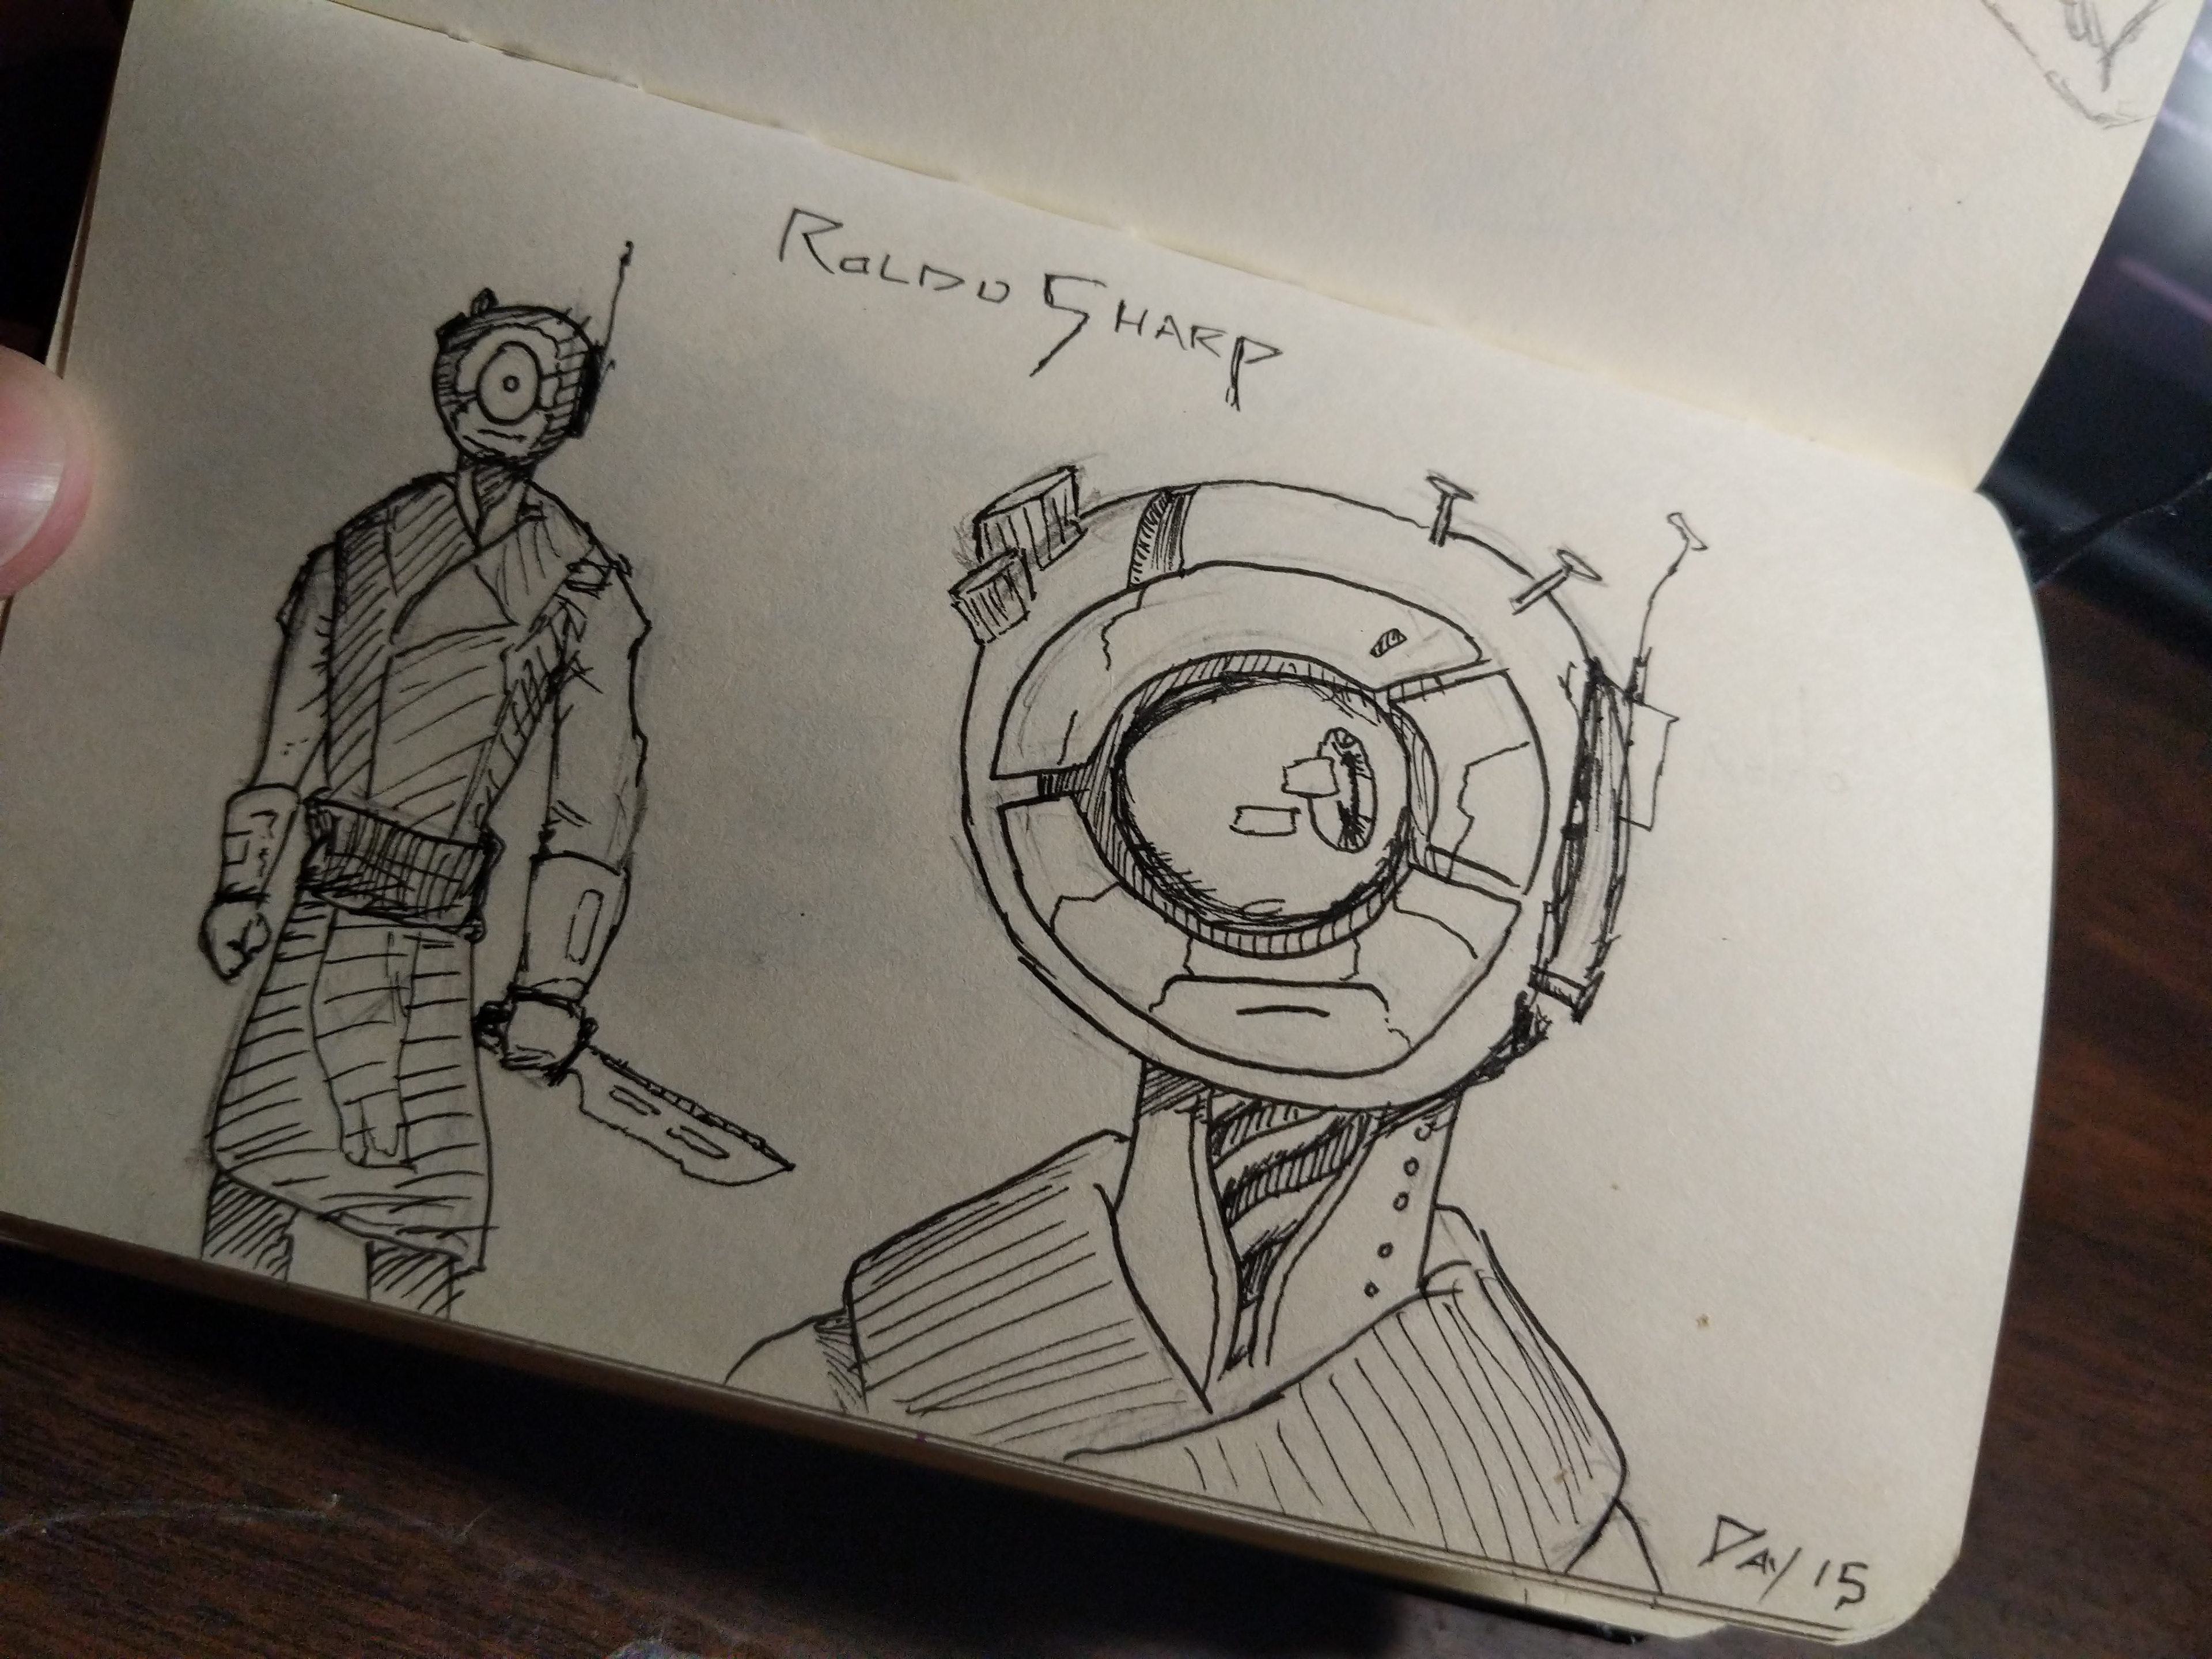 ROLDO SHARP
DAY 15